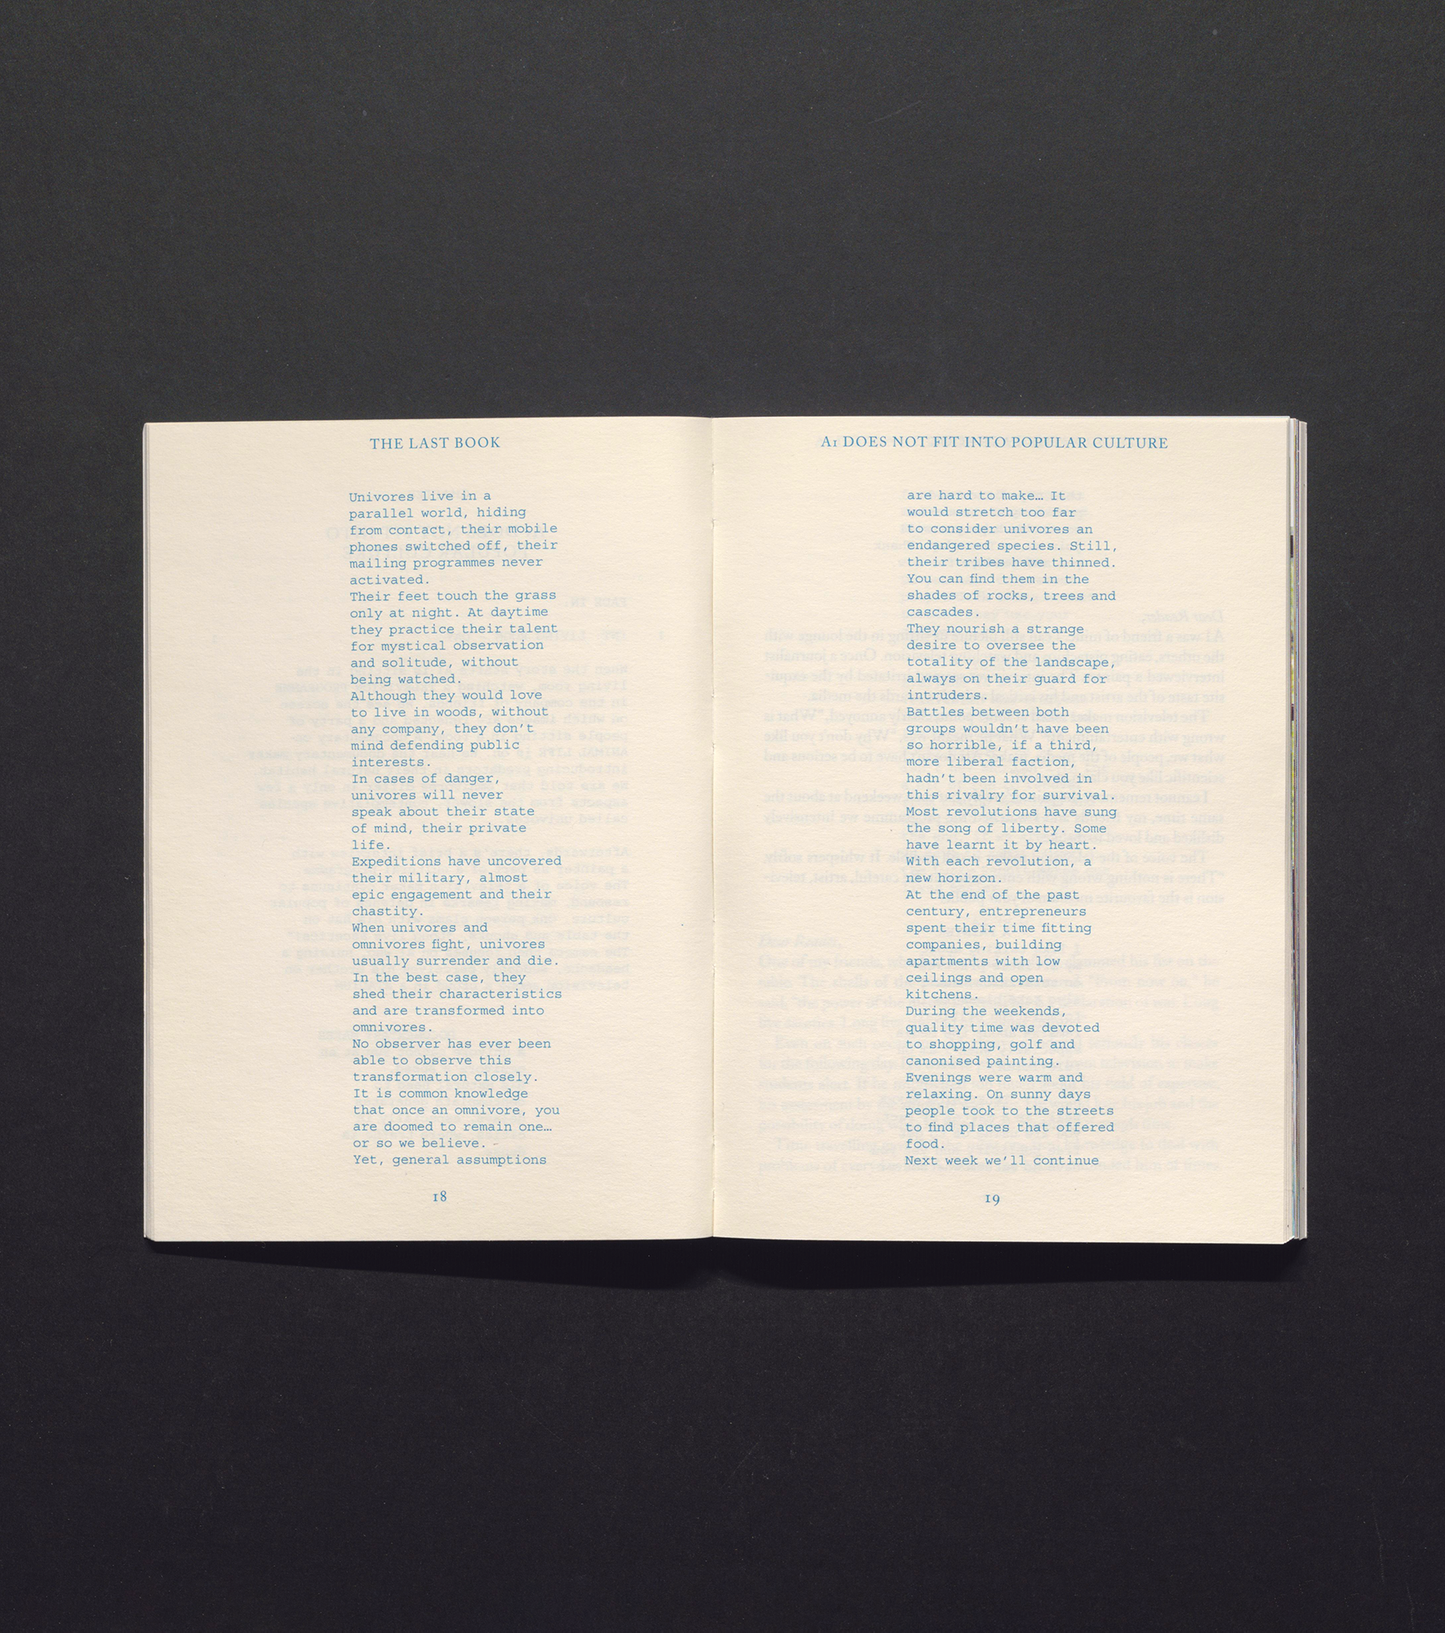 THE LAST BOOK
Univores live in a
parallel world, hiding
from contact, their mobile
phones switched off, their
mailing programmes never
activated.
Their feet touch the grass
only at night. At daytime
they practice their talent
for mystical observation
and solitude, without
being watched.
Although they would love
to live in woods, without
any company, they don't
mind defending public
interests.
In cases of danger,
univores will never
speak about their state
of mind, their private
life.
Expeditions have uncovered
their military, almost
epic engagement and their
chastity.
When univores and
omnivores fight, univores
usually surrender and die.
In the best case, they
shed their characteristics
and are transformed into
omnivores.
No observer has ever been
able to observe this
transformation closely.
It is common knowledge
that once an omnivore, you
are doomed to remain one…
or so we believe. –
Yet, general assumptions
18
A1 DOES NOT FIT INTO POPULAR CULTURE
are hard to make… It
would stretch too far
to consider univores an
endangered species. Still,
their tribes have thinned.
You can find them in the
shades of rocks, trees and
cascades.
They nourish a strange
desire to oversee the
totality of the landscape,
always on their guard for
intruders.
Battles between both
groups wouldn't have been
so horrible, if a third,
more liberal faction,
hadn't been involved in
this rivalry for survival.
Most revolutions have sung
the song of liberty. Some
have learnt it by heart.
With each revolution, a
new horizon.
At the end of the past
century, entrepreneurs
spent their time fitting
companies, building
apartments with low
ceilings and open
kitchens.
During the weekends,
quality time was devoted
to shopping, golf and
canonised painting.
Evenings were warm and
relaxing. On sunny days
people took to the streets
to find places that offered
food.
Next week we'll continue
19